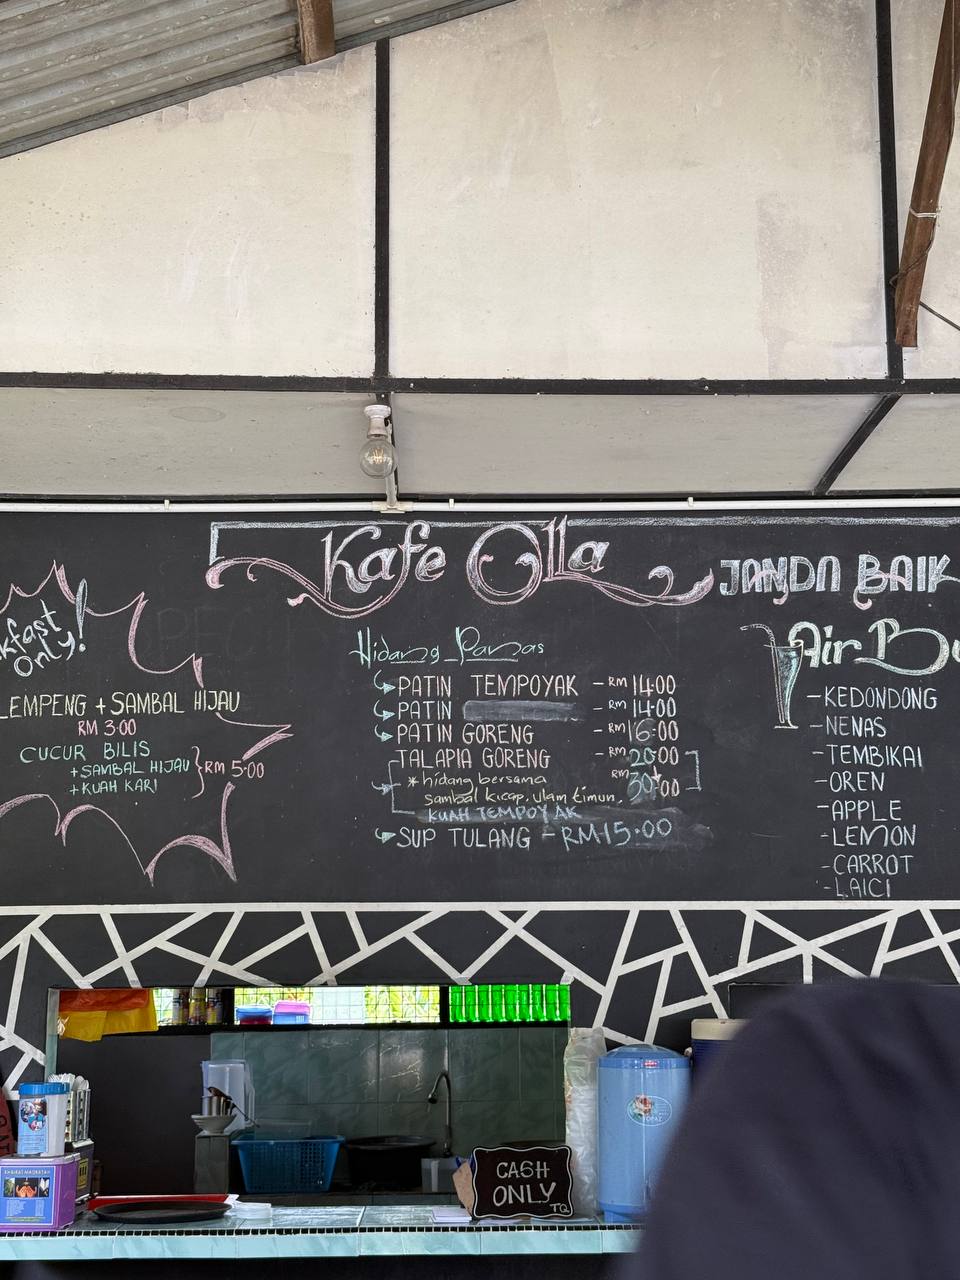 Kafe Olla
JANDA BAIK
Only!
LEMPENG + SAMBAL HIJAU
RM 3.00
CUCUR BILIS
+ SAMBAL HIJAU
+ KUAH KARI
RM 5.00
Hidang Panas
PATIN TEMPOYAK - RM 14.00
PATIN - RM 14.00
PATIN GORENG - RM 16.00
TALAPIA GORENG - RM 20.00
* hidang bersama RM 30.00
sambal kicap, ulam timun,
KUAH TEMPOYAK
SUP TULANG - RM15.00
Air
- KEDONDONG
- NENAS
- TEMBIKAI
- OREN
- APPLE
- LEMON
- CARROT
- LAICI
CASH
ONLY
TQ